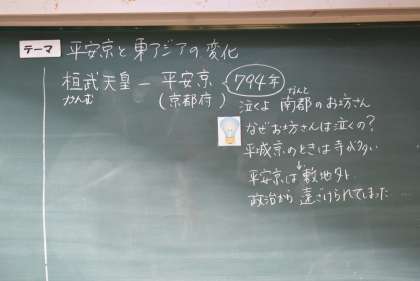 テーマ 平安京と東アジアの変化
桓武天皇 ― 平安京 794年
かんむ (京都府)
なんと
泣くよ 南都のお坊さん
なぜお坊さんは泣くの?
平城京のときは寺が多い
↓
平安京は敷地外
政治から 遠ざけられてしまった